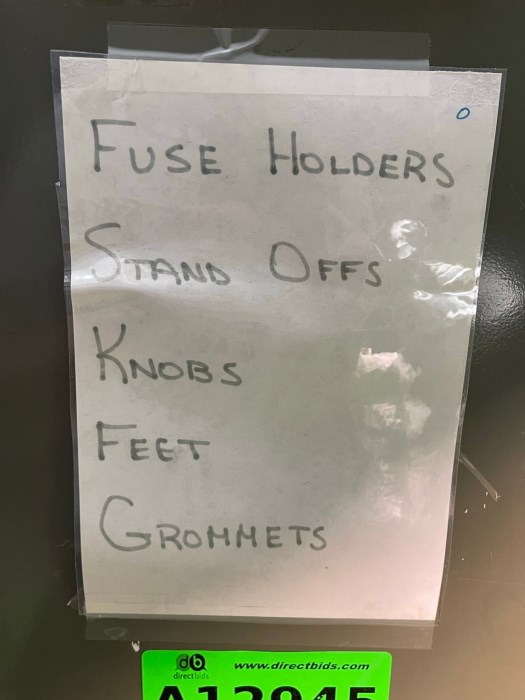 FUSE HOLDERS
STAND OFFS
KNOBS
FEET
GROMMETS
db www.directbids.com
directbids
A12945